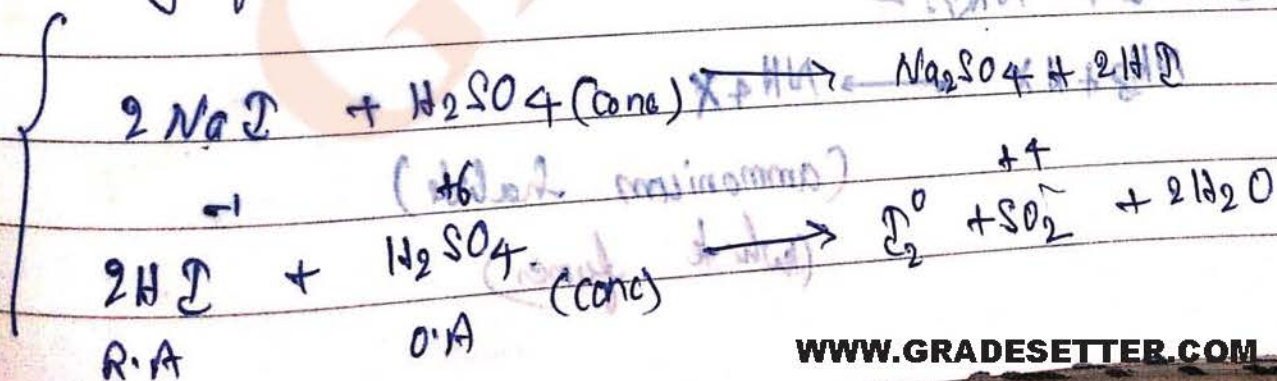 2 NaI + H2SO4 (Conc) → Na2SO4 + 2HI
-1 +6 +4
2HI + H2SO4 (conc) → I2⁰ + SO2 + 2H2O
R.A O.A
WWW.GRADESETTER.COM